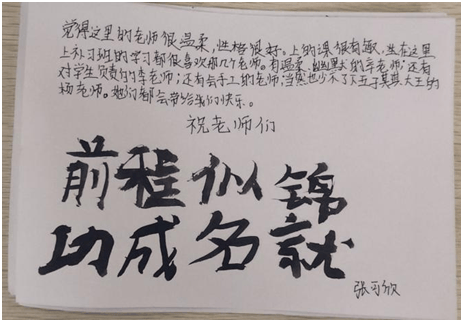 觉得这里的老师很温柔,性格很好。上的课很有趣,在这里
上补习班的学习都很喜欢那几个老师。有温柔、幽默的辛老师;还有
对学生负责的李老师;还有会手工的老师;当然也少不了五子棋大王的
杨老师。她们都会带给我们快乐。
祝老师们
前程似锦
功成名就
张可欣